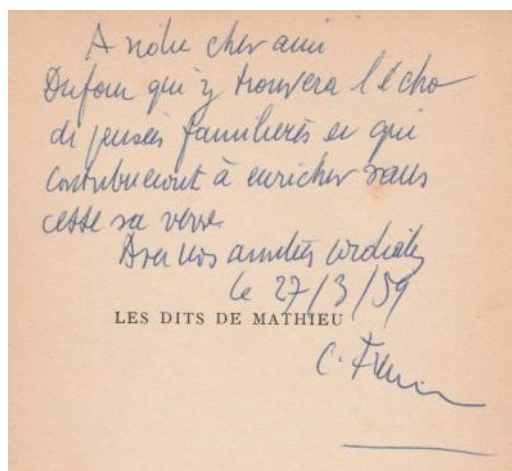 A notre cher ami
Dufour qui y trouvera l'écho
de pensées familières et qui
contribueront à enrichir sans
cesse sa verve.
Avec nos amitiés cordiales
le 27/3/59
LES DITS DE MATHIEU
C. Freinet